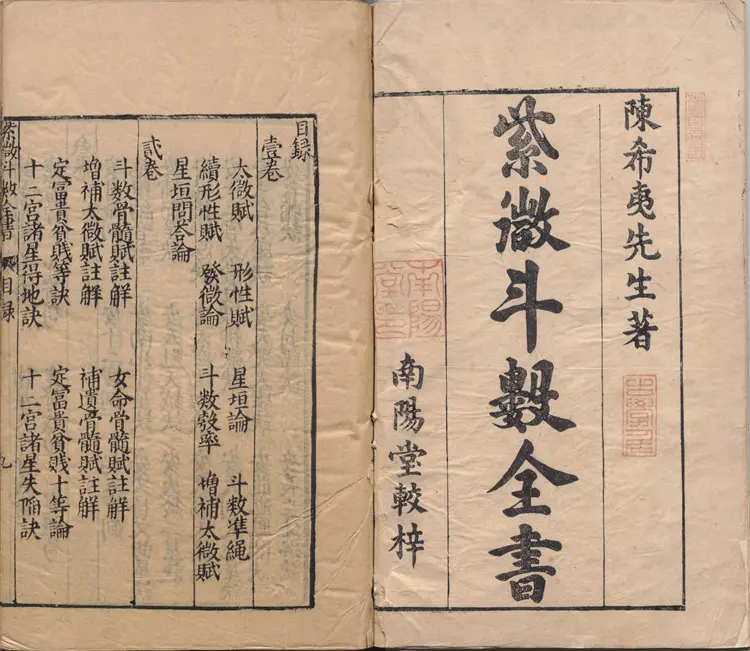 陳希夷先生著
紫微斗數全書
南陽堂較梓
南陽
堂記
目錄
壹卷
太微賦 形性賦 星垣論 斗數準繩
續形性賦 發微論 斗數彀率 增補太微賦
星垣問答論
貳卷
斗数骨髓賦註觧 女命骨髓賦註觧
增補太微賦註觧 補遺骨髓賦註觧
定富貴貧賤等訣 定富貴貧贱十等論
十二宮諸星得地訣 十二宮諸星失陷訣
紫微斗數全書 目錄 九